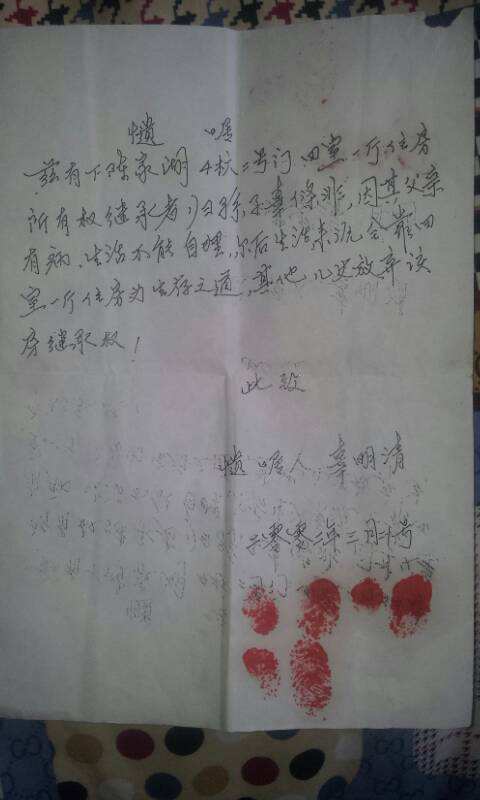 遗 嘱
兹有下陈家湖4栋二号门四室一厅住房
所有权继承者,归孙子辜 ,因其父亲
有病,生活不能自理,尔后生活来 靠四
室一厅住房为生存之道,其他儿女放弃该
房继承权!
此致
遗嘱人 辜明清
二零零二年三月十号